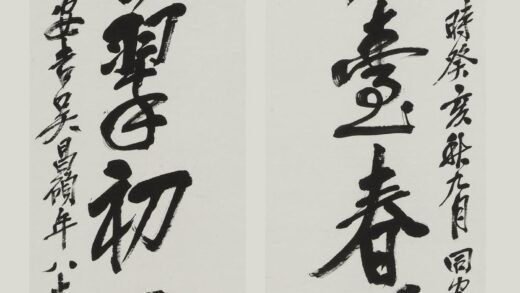 時癸亥秋九月同
臺春
初
安吉吳昌碩年八十